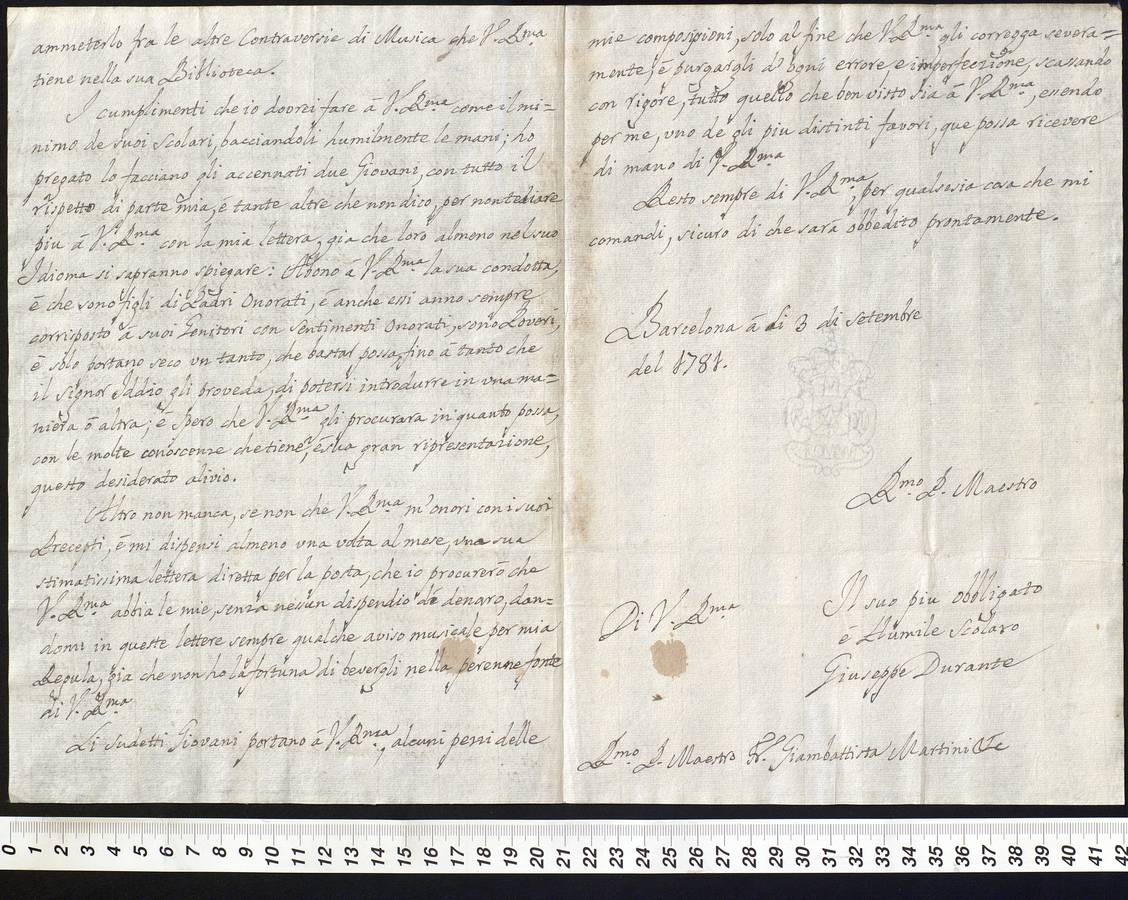 ammeterlo fra le altre Contraversie di Musica che V. Rma
tiene nella sua Biblioteca.
I cumplimenti che io dovrei fare á V. Rma come il mi=
nimo de suoi scolari, bacciandoli humilmente le mani; ho
pregato lo facciano gli accennati due Giovani, con tutto il
rispetto di parte mia, é tante altre che non dico, per non tediare
piu á V. Rma con la mia lettera, gia che loro almeno nel suo
Idioma si sapranno spiegare: Abono á V. Rma la sua condotta,
é che sono figli di Padri Onorati, é anche essi anno sempre
corrisposto á suoi Genitori con sentimenti Onorati, sono Poveri,
é solo portano seco vn tanto, che bastar possa, fino á tanto che
il Signor Iddio gli proveda, di potersi introdurre in vna ma=
niera ó altra; é spero che V. Rma gli procurará in quanto possa,
con le molte conoscenze che tiene, é sua gran ripresentazione,
questo desiderato alivio.
Altro non manca, se non che V. Rma m'onori con i suoi
Precepti, é mi dispensi almeno vna volta al mese, vna sua
stimatissima lettera diretta per la posta, che io procureró che
V. Rma abbia le mie, senza nesun dispendio de denaro, dan=
domi in queste lettere sempre qualche aviso musicale per mia
Regula, gia che non ho la fortuna di bevergli nella perenne fonte
di V. Rma
Li sudetti Giovani portano á V. Rma, alcuni pezzi delle
mie composizioni, solo al fine che V. Rma gli corregga severa=
mente, é purgargli d'ogni errore e imperfezione, scassando
con rigore, tutto quello che ben visto sia á V. Rma, essendo
per me, vno de gli piu distinti favori, que possa ricevere
di mano di V. Rma
Resto sempre di V. Rma, per qualsesia cosa che mi
comandi, sicuro di che sará obbedito prontamente.
Barcelona á di 3 di setembre
del 1781.
Rmo P. Maestro
Di V. Rma
Il suo piu obbligato
é Humile Scolaro
Giuseppe Durante
Rmo P. Maestro Fr. Giambattista Martini &c